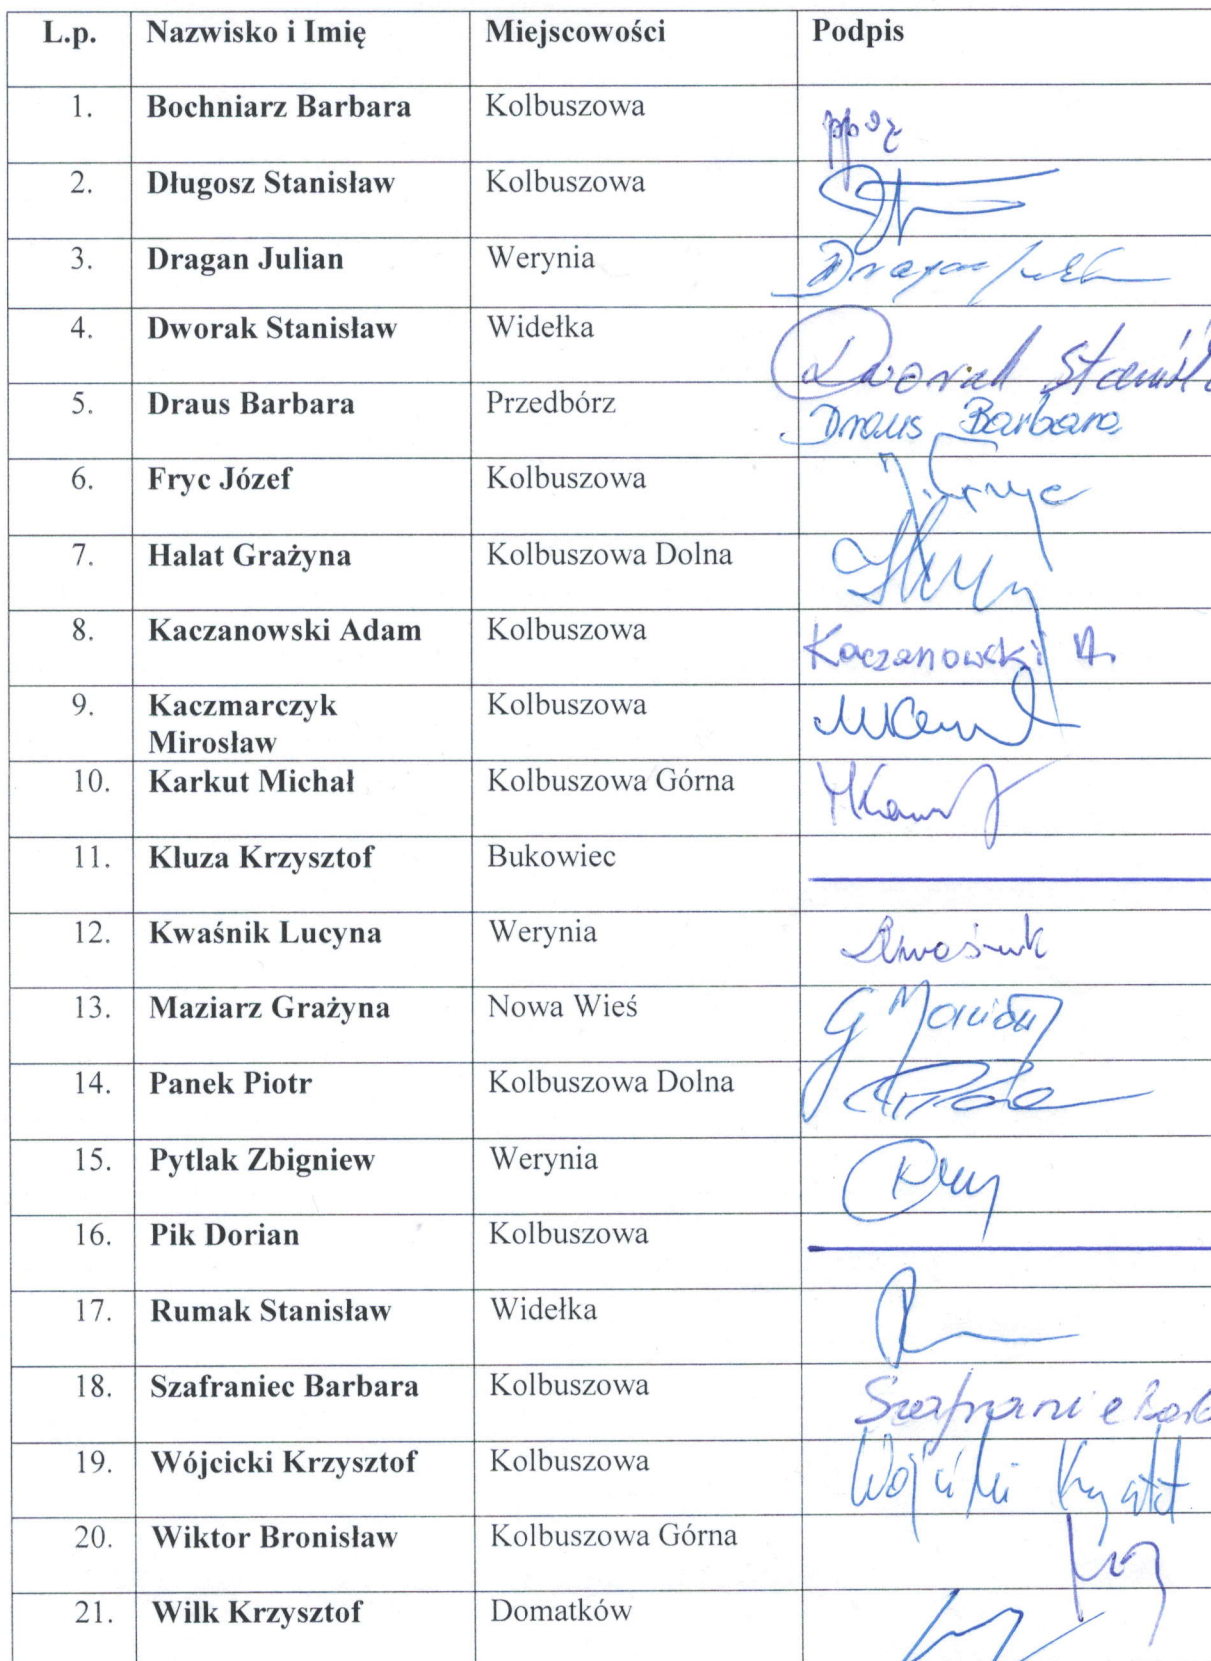 L.p. Nazwisko i Imię Miejscowości Podpis
1. Bochniarz Barbara Kolbuszowa
2. Długosz Stanisław Kolbuszowa
3. Dragan Julian Werynia Dragan Julian
4. Dworak Stanisław Widełka Dworak Stanisł
5. Draus Barbara Przedbórz Draus Barbara
6. Fryc Józef Kolbuszowa J. Fryc
7. Halat Grażyna Kolbuszowa Dolna
8. Kaczanowski Adam Kolbuszowa Kaczanowski A.
9. Kaczmarczyk Kolbuszowa
Mirosław
10. Karkut Michał Kolbuszowa Górna
11. Kluza Krzysztof Bukowiec
12. Kwaśnik Lucyna Werynia Kwaśnik
13. Maziarz Grażyna Nowa Wieś G Maziarz
14. Panek Piotr Kolbuszowa Dolna
15. Pytlak Zbigniew Werynia
16. Pik Dorian Kolbuszowa
17. Rumak Stanisław Widełka
18. Szafraniec Barbara Kolbuszowa Szafranie Barb
19. Wójcicki Krzysztof Kolbuszowa Wójcicki Krzysztof
20. Wiktor Bronisław Kolbuszowa Górna
21. Wilk Krzysztof Domatków